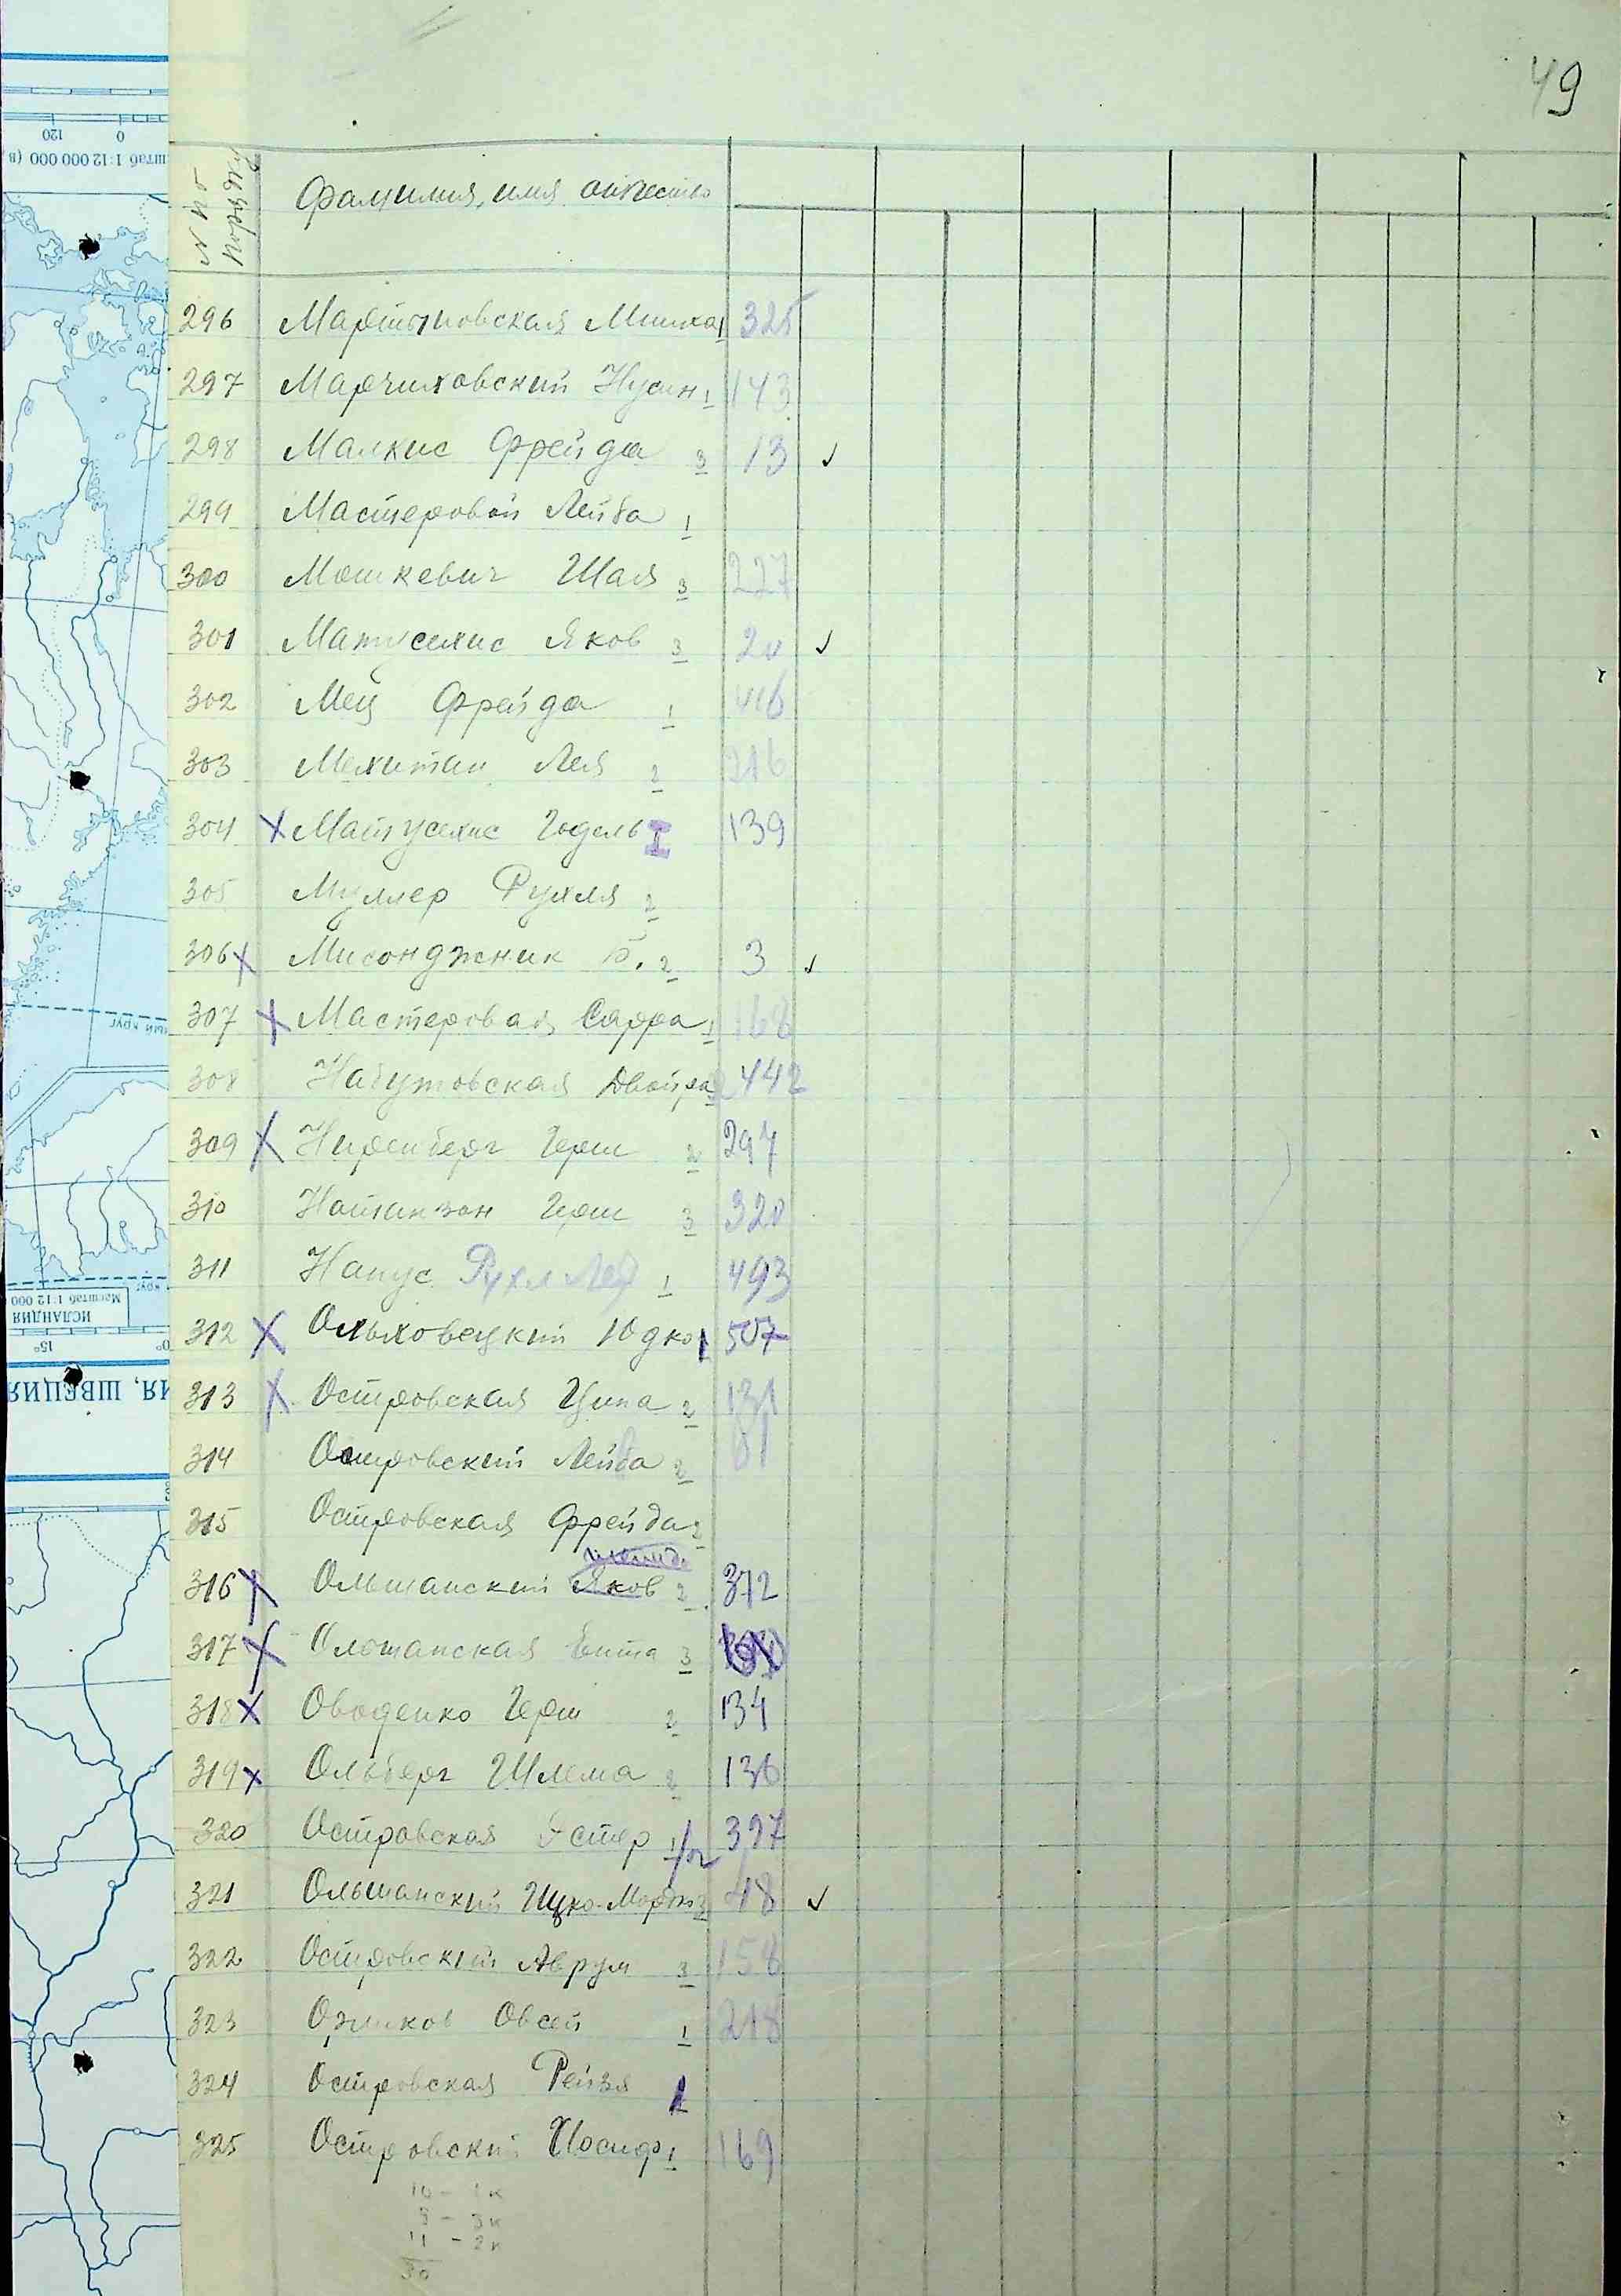 49
N по порядку Фамилия, имя отчество
296 Мартыновская Милка 1 325
297 Марчиковский Нусин 1 143
298 Малкис Фрейда 3 13 ✓
299 Мастеровой Лейба 1
300 Мошкевич Шая 3 227
301 Матуселис Яков 3 20 ✓
302 Мец Фрейда 1 416
303 Лея 2
304 X Матуселис Годель I 139
305 Муллер Рухля 2
306 X Мисонджник Б. 2 3 ✓
307 X Мастеровая Сарра 1 168
308 Набутовская Двойра 2 442
309 X Ниренберг Герш 2 297
310 Натанзон Герш 3 320
311 Напус Рухл Лея 1 493
312 X Ольховецкий Юдко 1 507
313 X Островская Ципа 2 131
314 Островский Лейба 2 81
315 Островская Фрейда 2
316 X Ольшанский Яков 2 372
317 X Ольшанская Бита 3
318 X Оводенко Герш 2 134
319 X Ольберг Шлема 2 136
320 Островская Эстер 1/2 397
321 Ольшанский Ицко-Мордко 3 48 ✓
322 Островский Аврум 3 158
323 Овсей 1 218
324 Островская Рейзя 1
325 Островский Иосиф 1 169
10 - 1к
9 - 3к
11 - 2к
30
штаб 1:12 000 000 (в
120 0
ИСЛАНДИЯ
Масштаб 1:12 000
15°
ИЯ, ШВЕЦИЯ